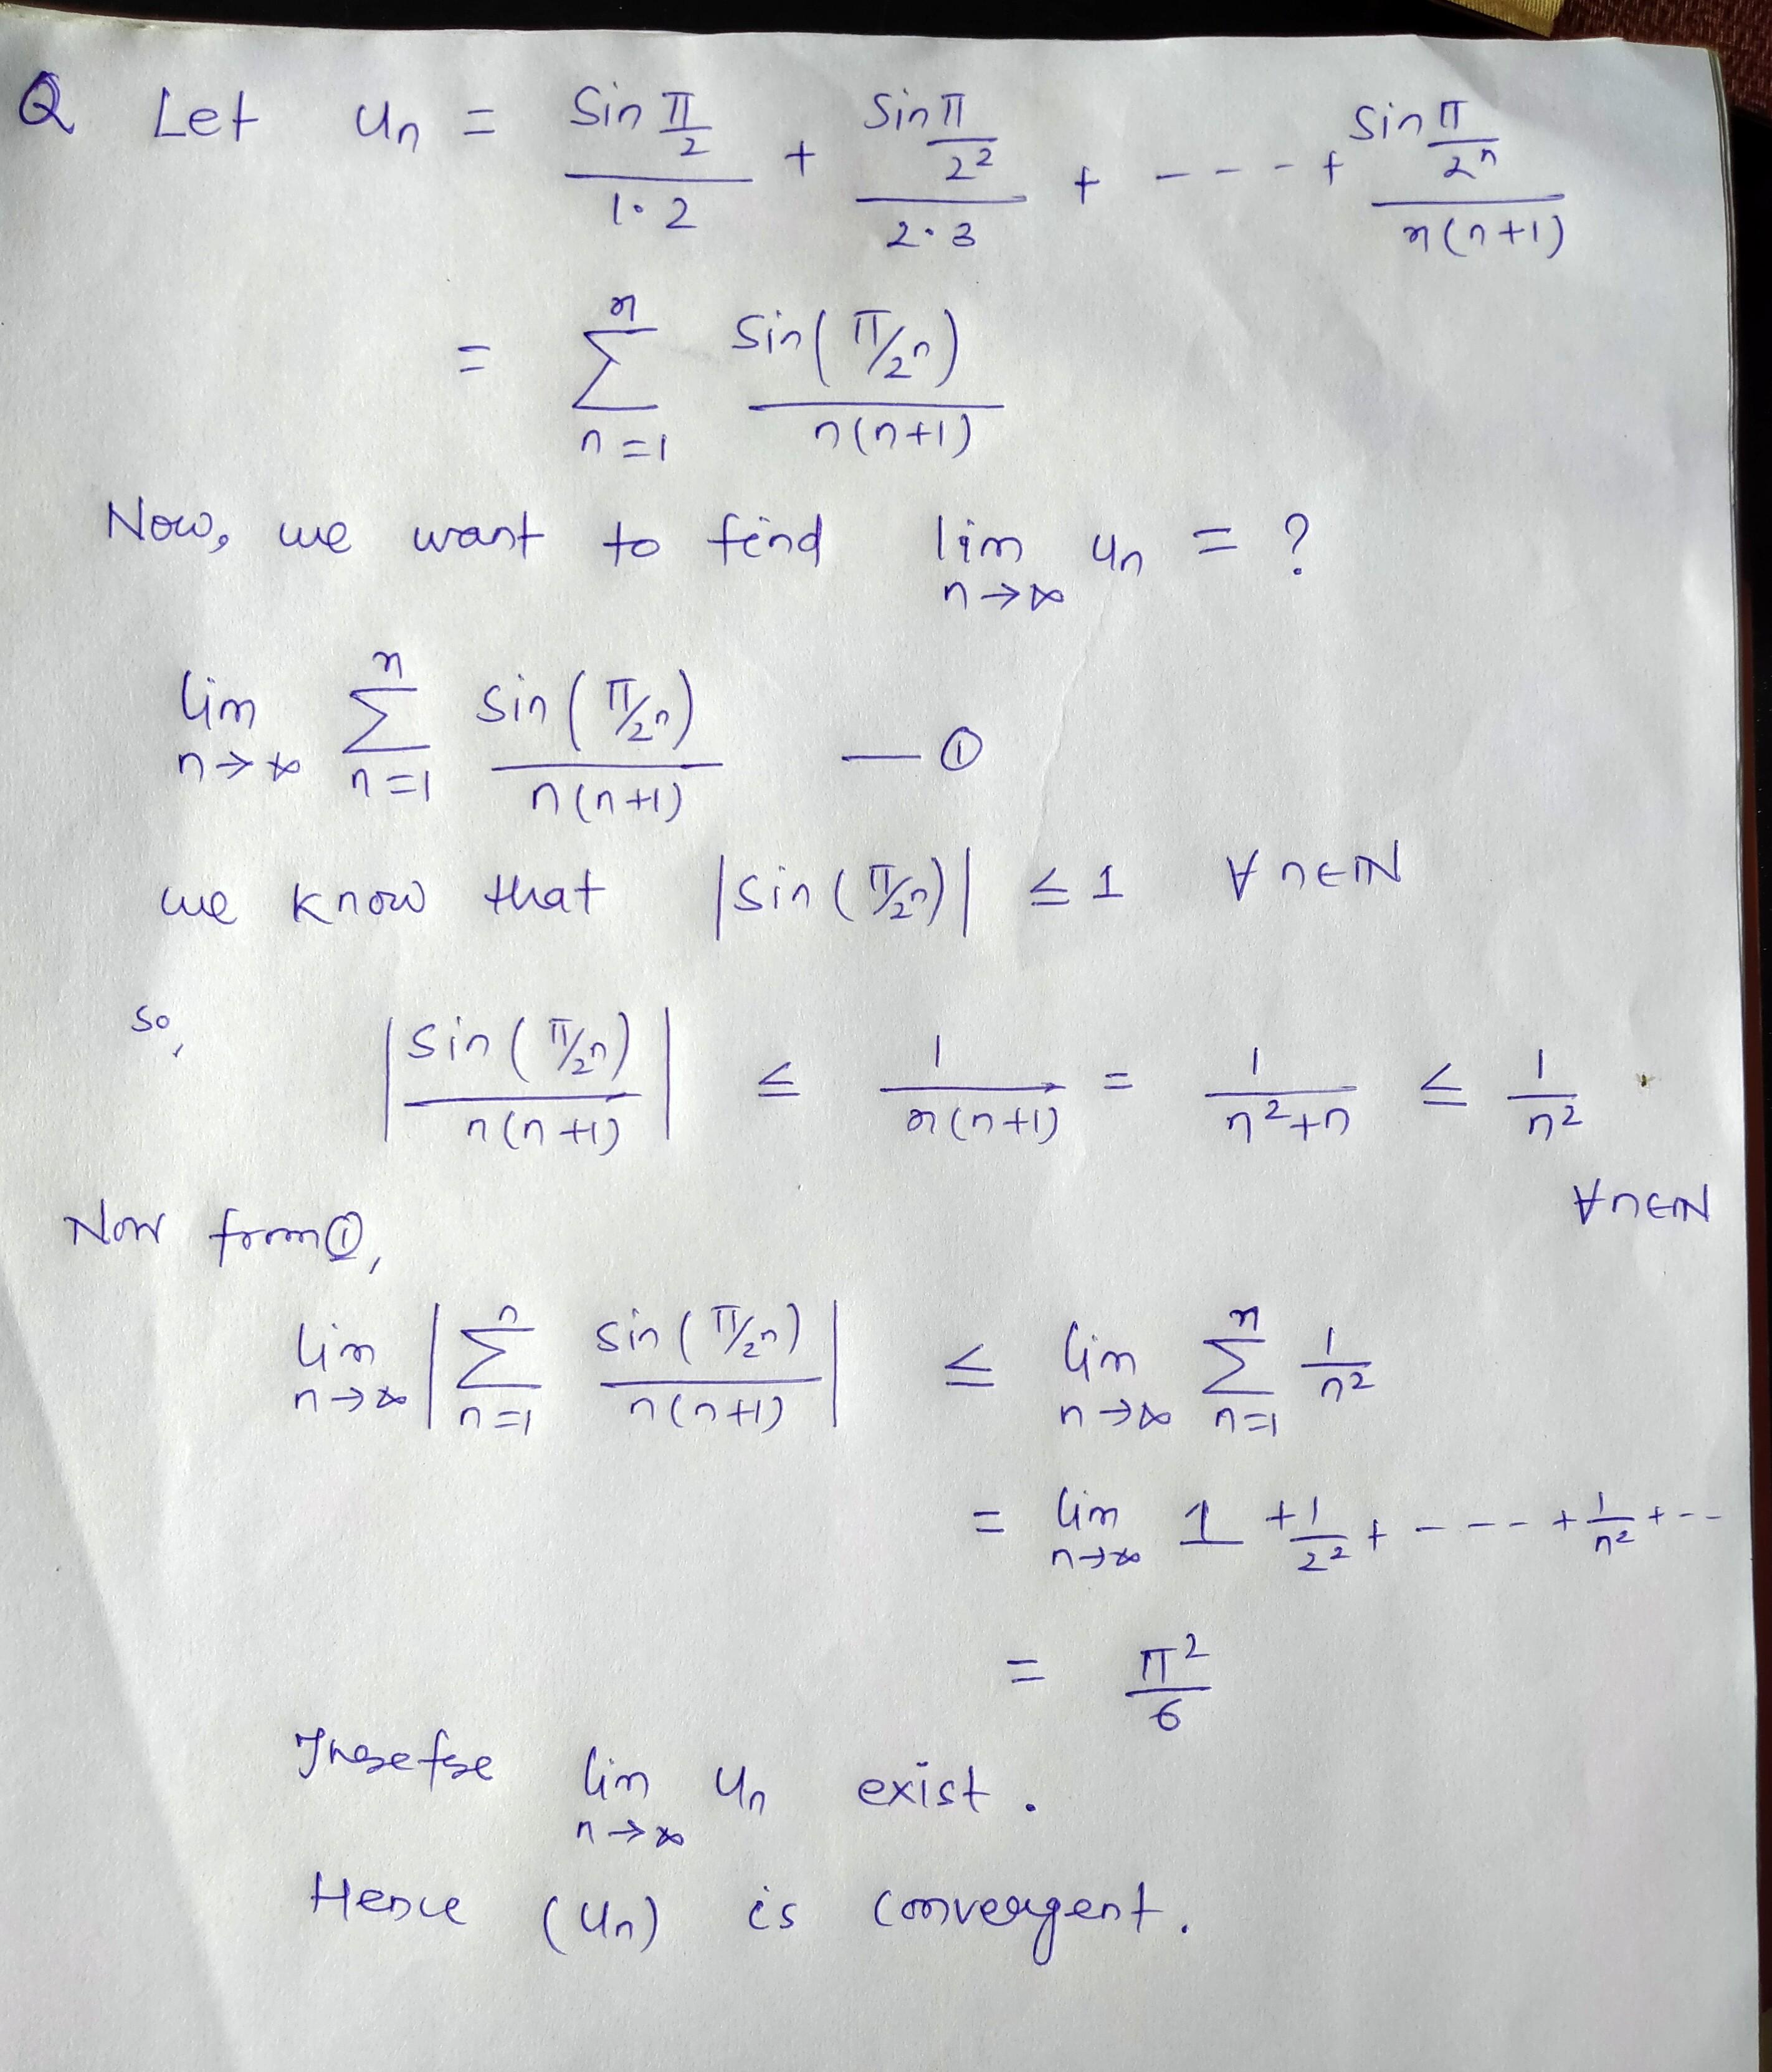 Q Let un = sin π/2 / 1·2 + sin π/2² / 2·3 + - - - - + sin π/2ⁿ / n(n+1)
= ∑ₙ₌₁ⁿ sin(π/2ⁿ) / n(n+1)
Now, we want to find lim n→∞ un = ?
lim n→∞ ∑ₙ₌₁ⁿ sin(π/2ⁿ) / n(n+1) — ①
we know that |sin(π/2ⁿ)| ≤ 1 ∀ n∈ℕ
so, |sin(π/2ⁿ) / n(n+1)| ≤ 1 / n(n+1) = 1 / n²+n ≤ 1 / n²
∀n∈ℕ
Now from ①,
lim n→∞ |∑ₙ₌₁ⁿ sin(π/2ⁿ) / n(n+1)| ≤ lim n→∞ ∑ₙ₌₁ⁿ 1 / n²
= lim n→∞ 1 + 1/2² + - - - - + 1/n² + - -
= π² / 6
Therefore lim n→∞ un exist.
Hence (un) is convergent.